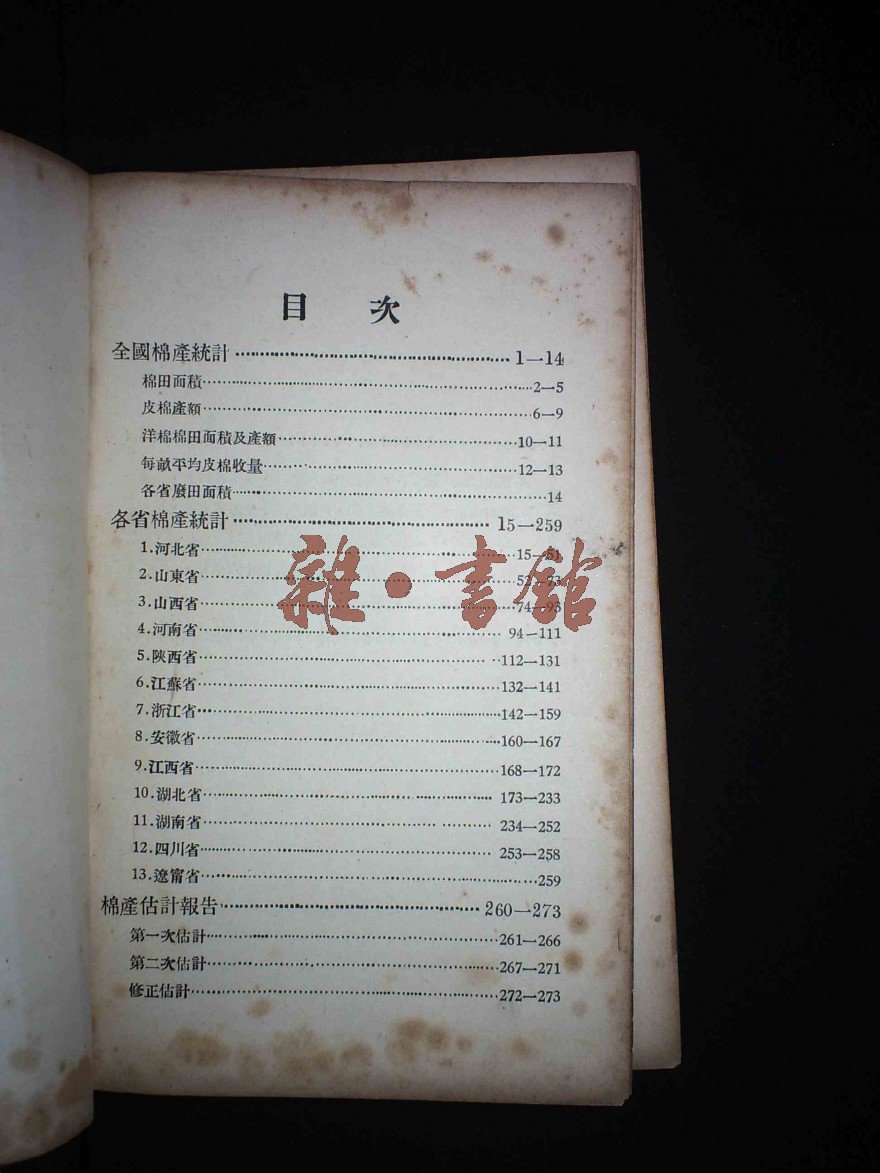 目 次
全國棉產統計 1—14
棉田面積 2—5
皮棉產額 6—9
洋棉棉田面積及產額 10—11
每畝平均皮棉收量 12—13
各省廢田面積 14
各省棉產統計 15—259
1.河北省 15—51
2.山東省 52—73
3.山西省 74—93
4.河南省 94—111
5.陝西省 112—131
6.江蘇省 132—141
7.浙江省 142—159
8.安徽省 160—167
9.江西省 168—172
10.湖北省 173—233
11.湖南省 234—252
12.四川省 253—258
13.遼甯省 259
棉產估計報告 260—273
第一次估計 261—266
第二次估計 267—271
修正估計 272—273
雜·書館